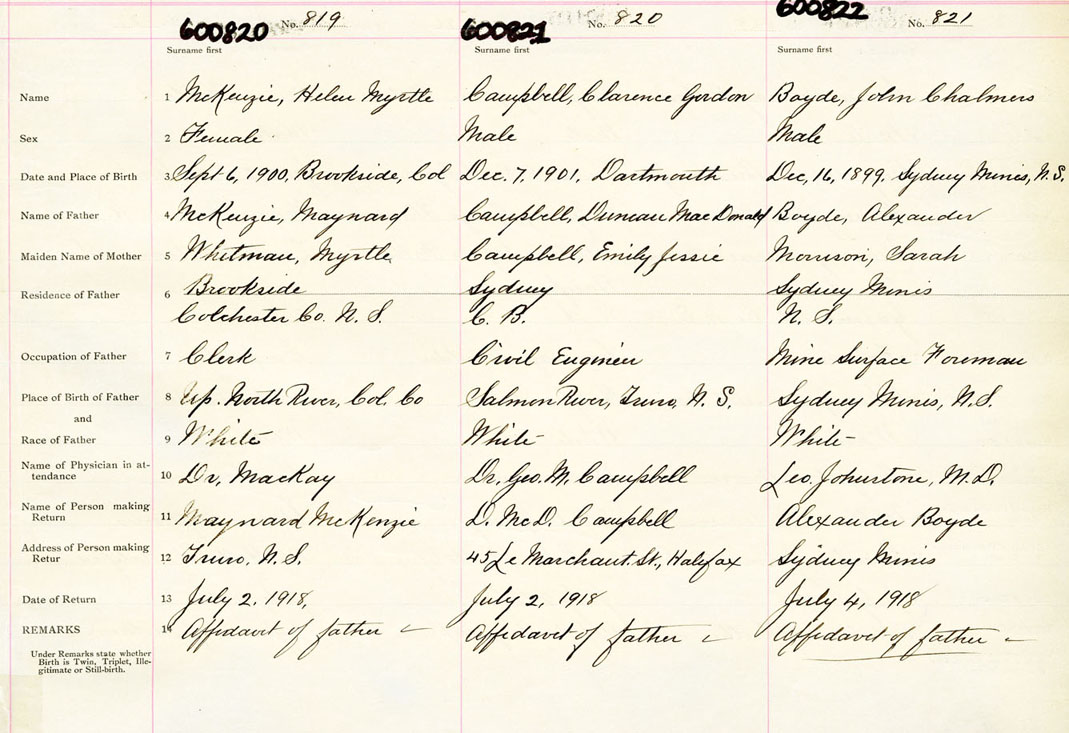 600820 No. 819
600821 No. 820
600822 No. 821
Surname first Surname first Surname first
Name 1 McKenzie, Helen Myrtle Campbell, Clarence Gordon Boyde, John Chalmers
Sex 2 Female Male Male
Date and Place of Birth 3 Sept 6, 1900, Brookside, Col Dec. 7, 1901, Dartmouth Dec, 16, 1899, Sydney Mines, N.S.
Name of Father 4 McKenzie, Maynard Campbell, Duncan MacDonald Boyde, Alexander
Maiden Name of Mother 5 Whitman, Myrtle Campbell, Emily Jessie Morrison, Sarah
Residence of Father 6 Brookside Sydney Sydney Mines
Colchester Co. N. S. C. B. N. S.
Occupation of Father 7 Clerk Civil Engineer Mine Surface Foreman
Place of Birth of Father 8 Up. North River, Col. Co Salmon River, Truro, N. S. Sydney Mines, N.S.
and
Race of Father 9 White White White
Name of Physician in at-
tendance 10 Dr, MacKay Dr. Geo. M. Campbell Leo. Johnstone, M.D.
Name of Person making
Return 11 Maynard McKenzie D. McD. Campbell Alexander Boyde
Address of Person making
Retur 12 Truro, N.S. 45 Le Marchant. St., Halifax Sydney Mines
Date of Return 13 July 2, 1918, July 2, 1918 July 4, 1918
REMARKS 14 Affidavit of father Affidavit of father Affidavit of father
Under Remarks state whether
Birth is Twin, Triplet, Ille-
gitimate or Still-birth.